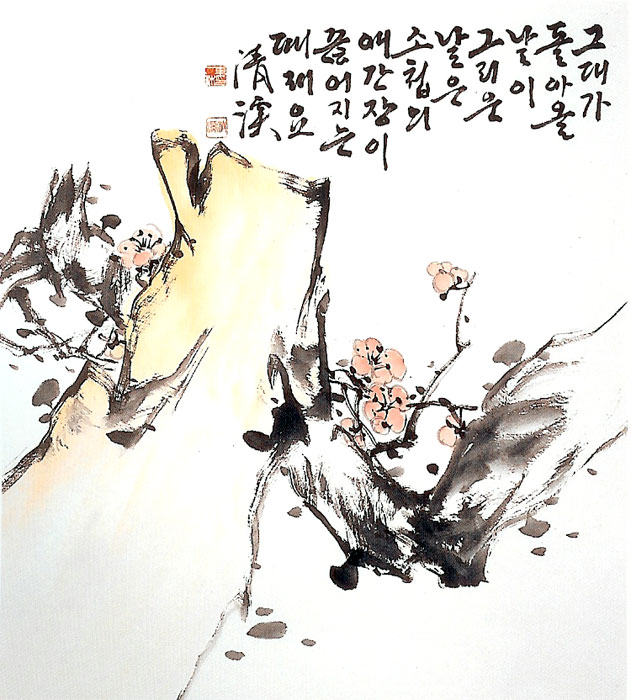 그대가
돌아올
날이
그리운
날은
소첩의
애간장이
끊어지는
때래요
清溪